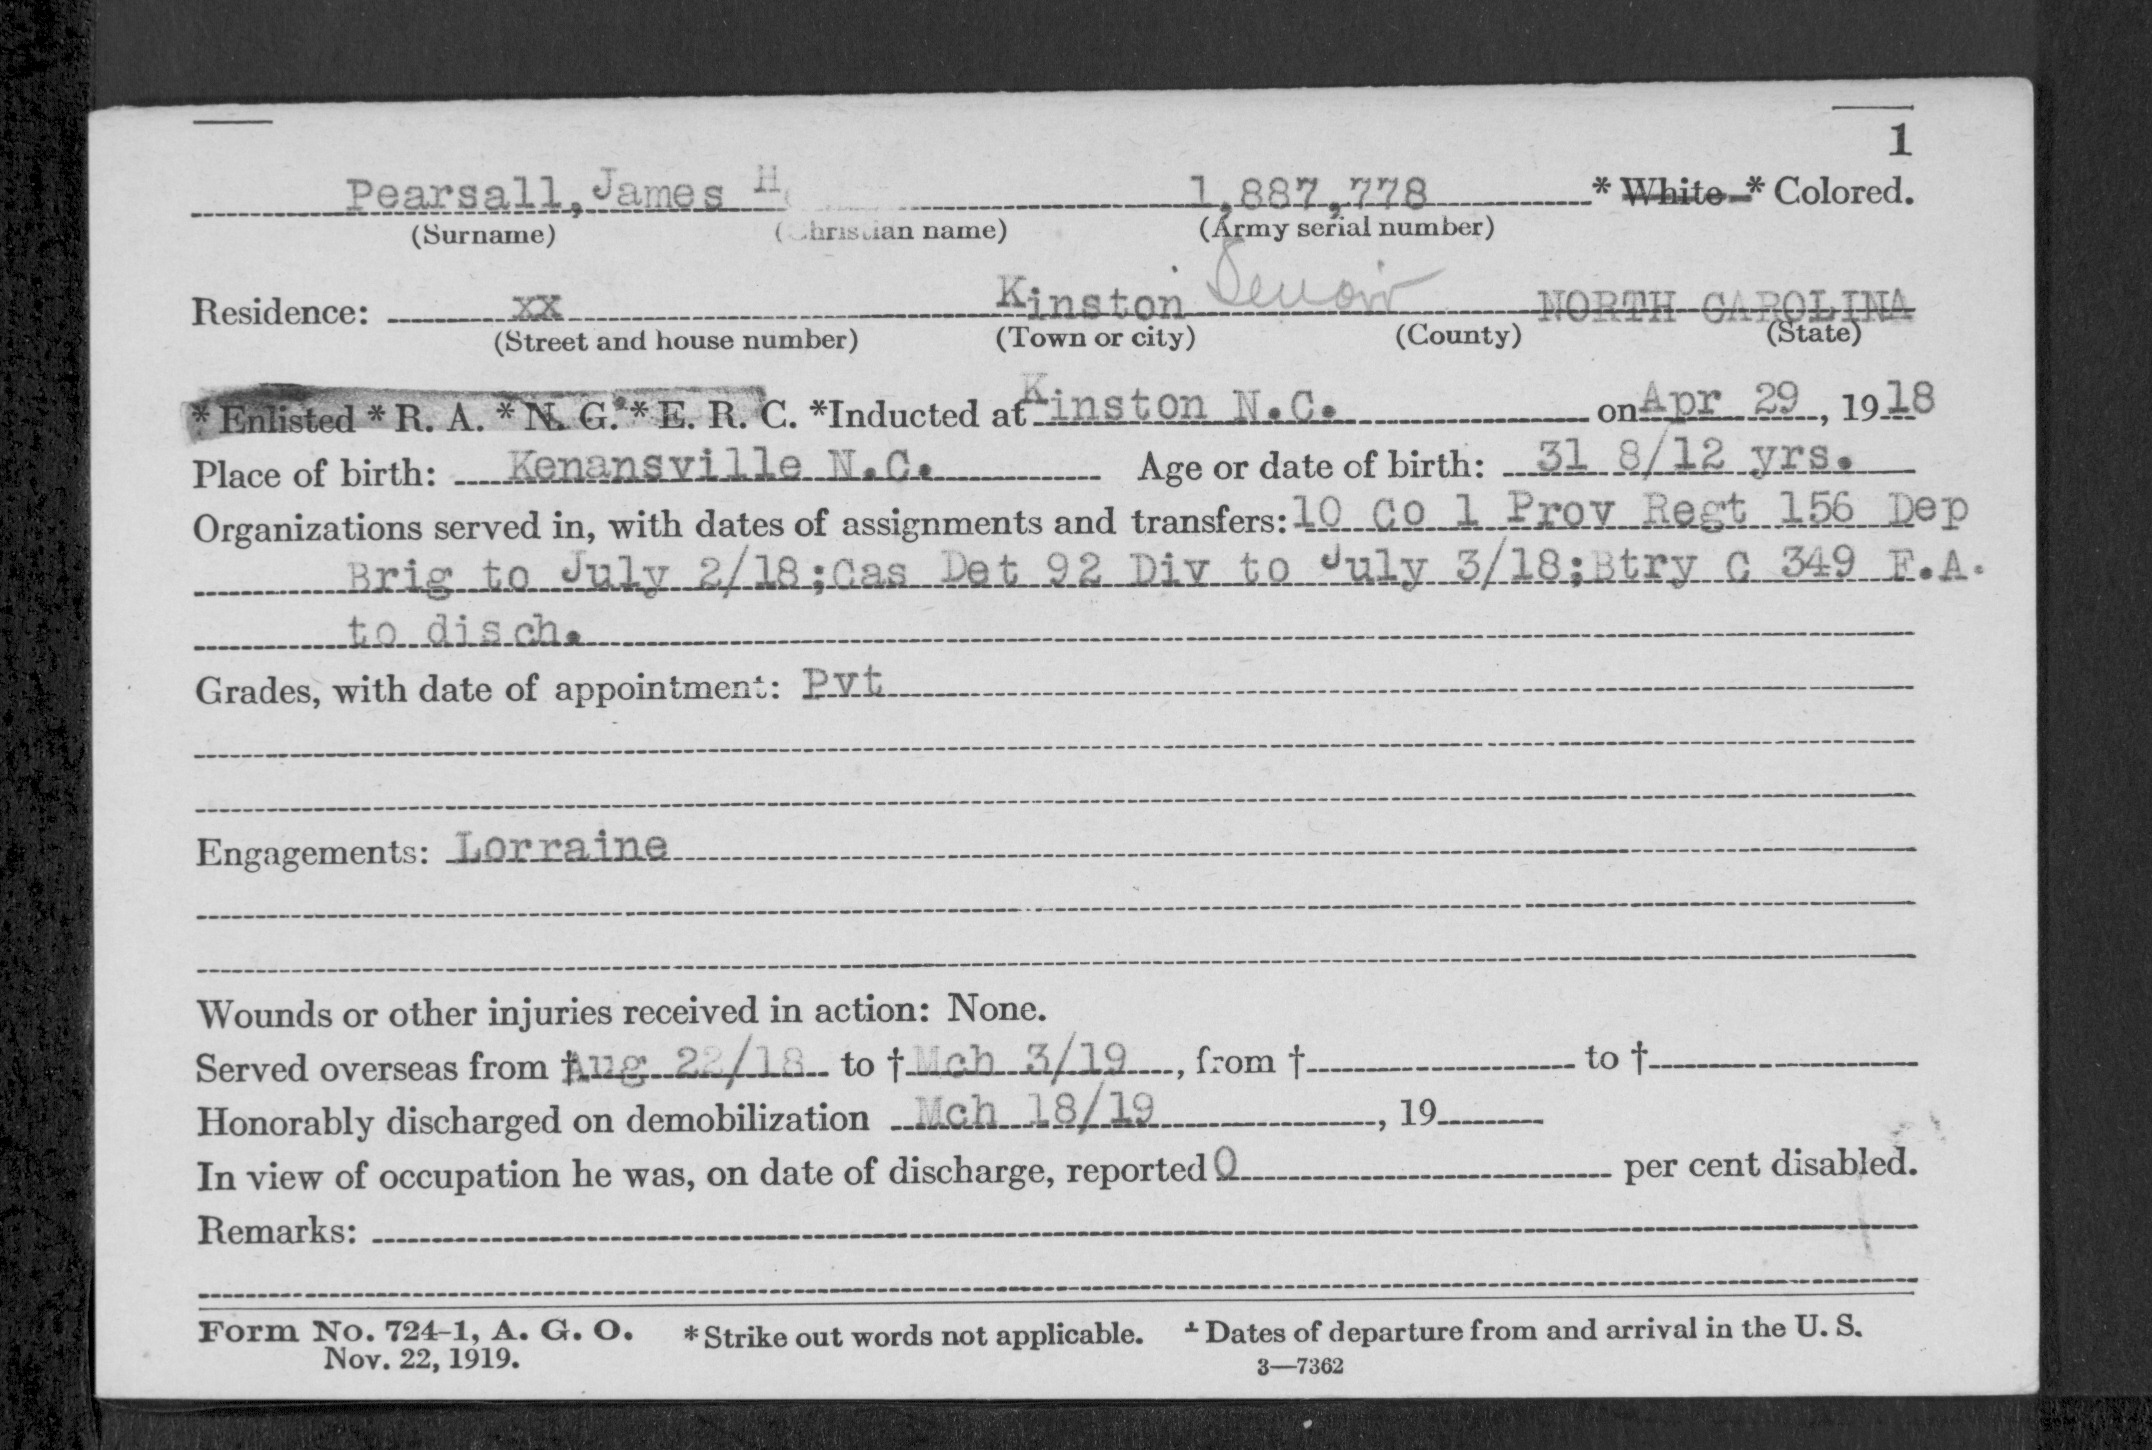 1
Pearsall, James H 1,887,778 * White * Colored.
(Surname) (Christian name) (Army serial number)
Residence: xx Kinston Lenoir NORTH CAROLINA
(Street and house number) (Town or city) (County) (State)
* Enlisted * R. A. * N. G. * E. R. C. *Inducted at Kinston N.C. on Apr 29, 1918
Place of birth: Kenansville N.C. Age or date of birth: 31 8/12 yrs.
Organizations served in, with dates of assignments and transfers: 10 Co 1 Prov Regt 156 Dep
Brig to July 2/18;Cas Det 92 Div to July 3/18;Btry C 349 F.A.
to disch.
Grades, with date of appointment: Pvt
Engagements: Lorraine
Wounds or other injuries received in action: None.
Served overseas from † Aug 22/18 to † Mch 3/19, from † to †
Honorably discharged on demobilization Mch 18/19, 19
In view of occupation he was, on date of discharge, reported 0 per cent disabled.
Remarks:
Form No. 724-1, A. G. O. *Strike out words not applicable. † Dates of departure from and arrival in the U. S.
Nov. 22, 1919. 3—7362